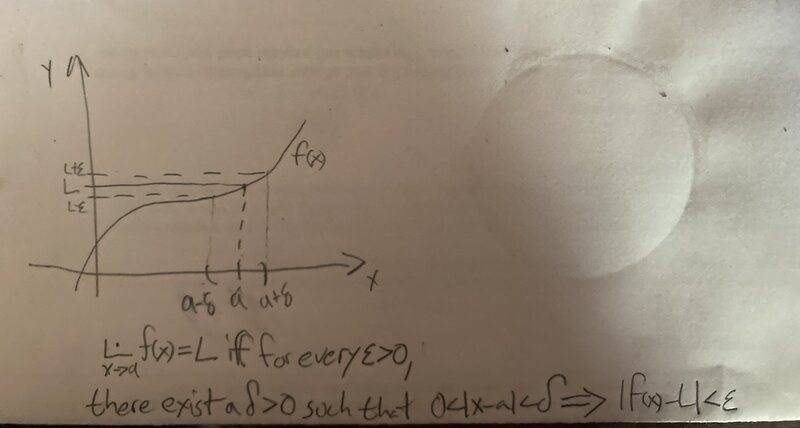 Y
f(x)
L+ε
L
L-ε
X
a-δ a a+δ
Lim x→a f(x)=L iff for every ε>0,
there exist a δ>0 such that 0<|x-a|<δ ⇒ |f(x)-L|<ε